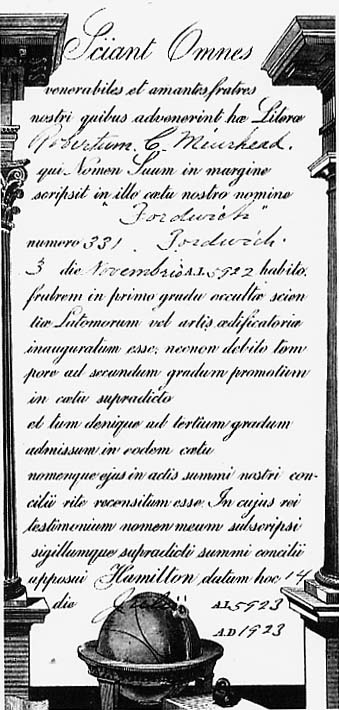 Sciant Omnes
venerabiles et amantes fratres
nostri quibus advenerint hæ Literæ
Robertum C. Muirhead.
qui Nomen Suum in margine
scripsit in illo cœtu nostro nomine
"Fordwich"
numero 331 Fordwich.
3 die Novembris A.L. 5922 habito,
fratrem in primo gradu occultæ scien
tiæ Latomorum vel artis ædificatoriæ
inauguratum esse; necnon debito tem
pore ad secundum gradum promotium
in cœtu supradicto
et tum denique ad tertium gradum
admissum in eodem cœtu
nomenque ejus in actis summi nostri con-
cilii rite recensitum esse. In cujus rei
testimonium nomen meum subscripsi
sigillumque supradicti summi concilii
apposui Hamilton, datum hoc 14
die A.L. 5923
A.D. 1923